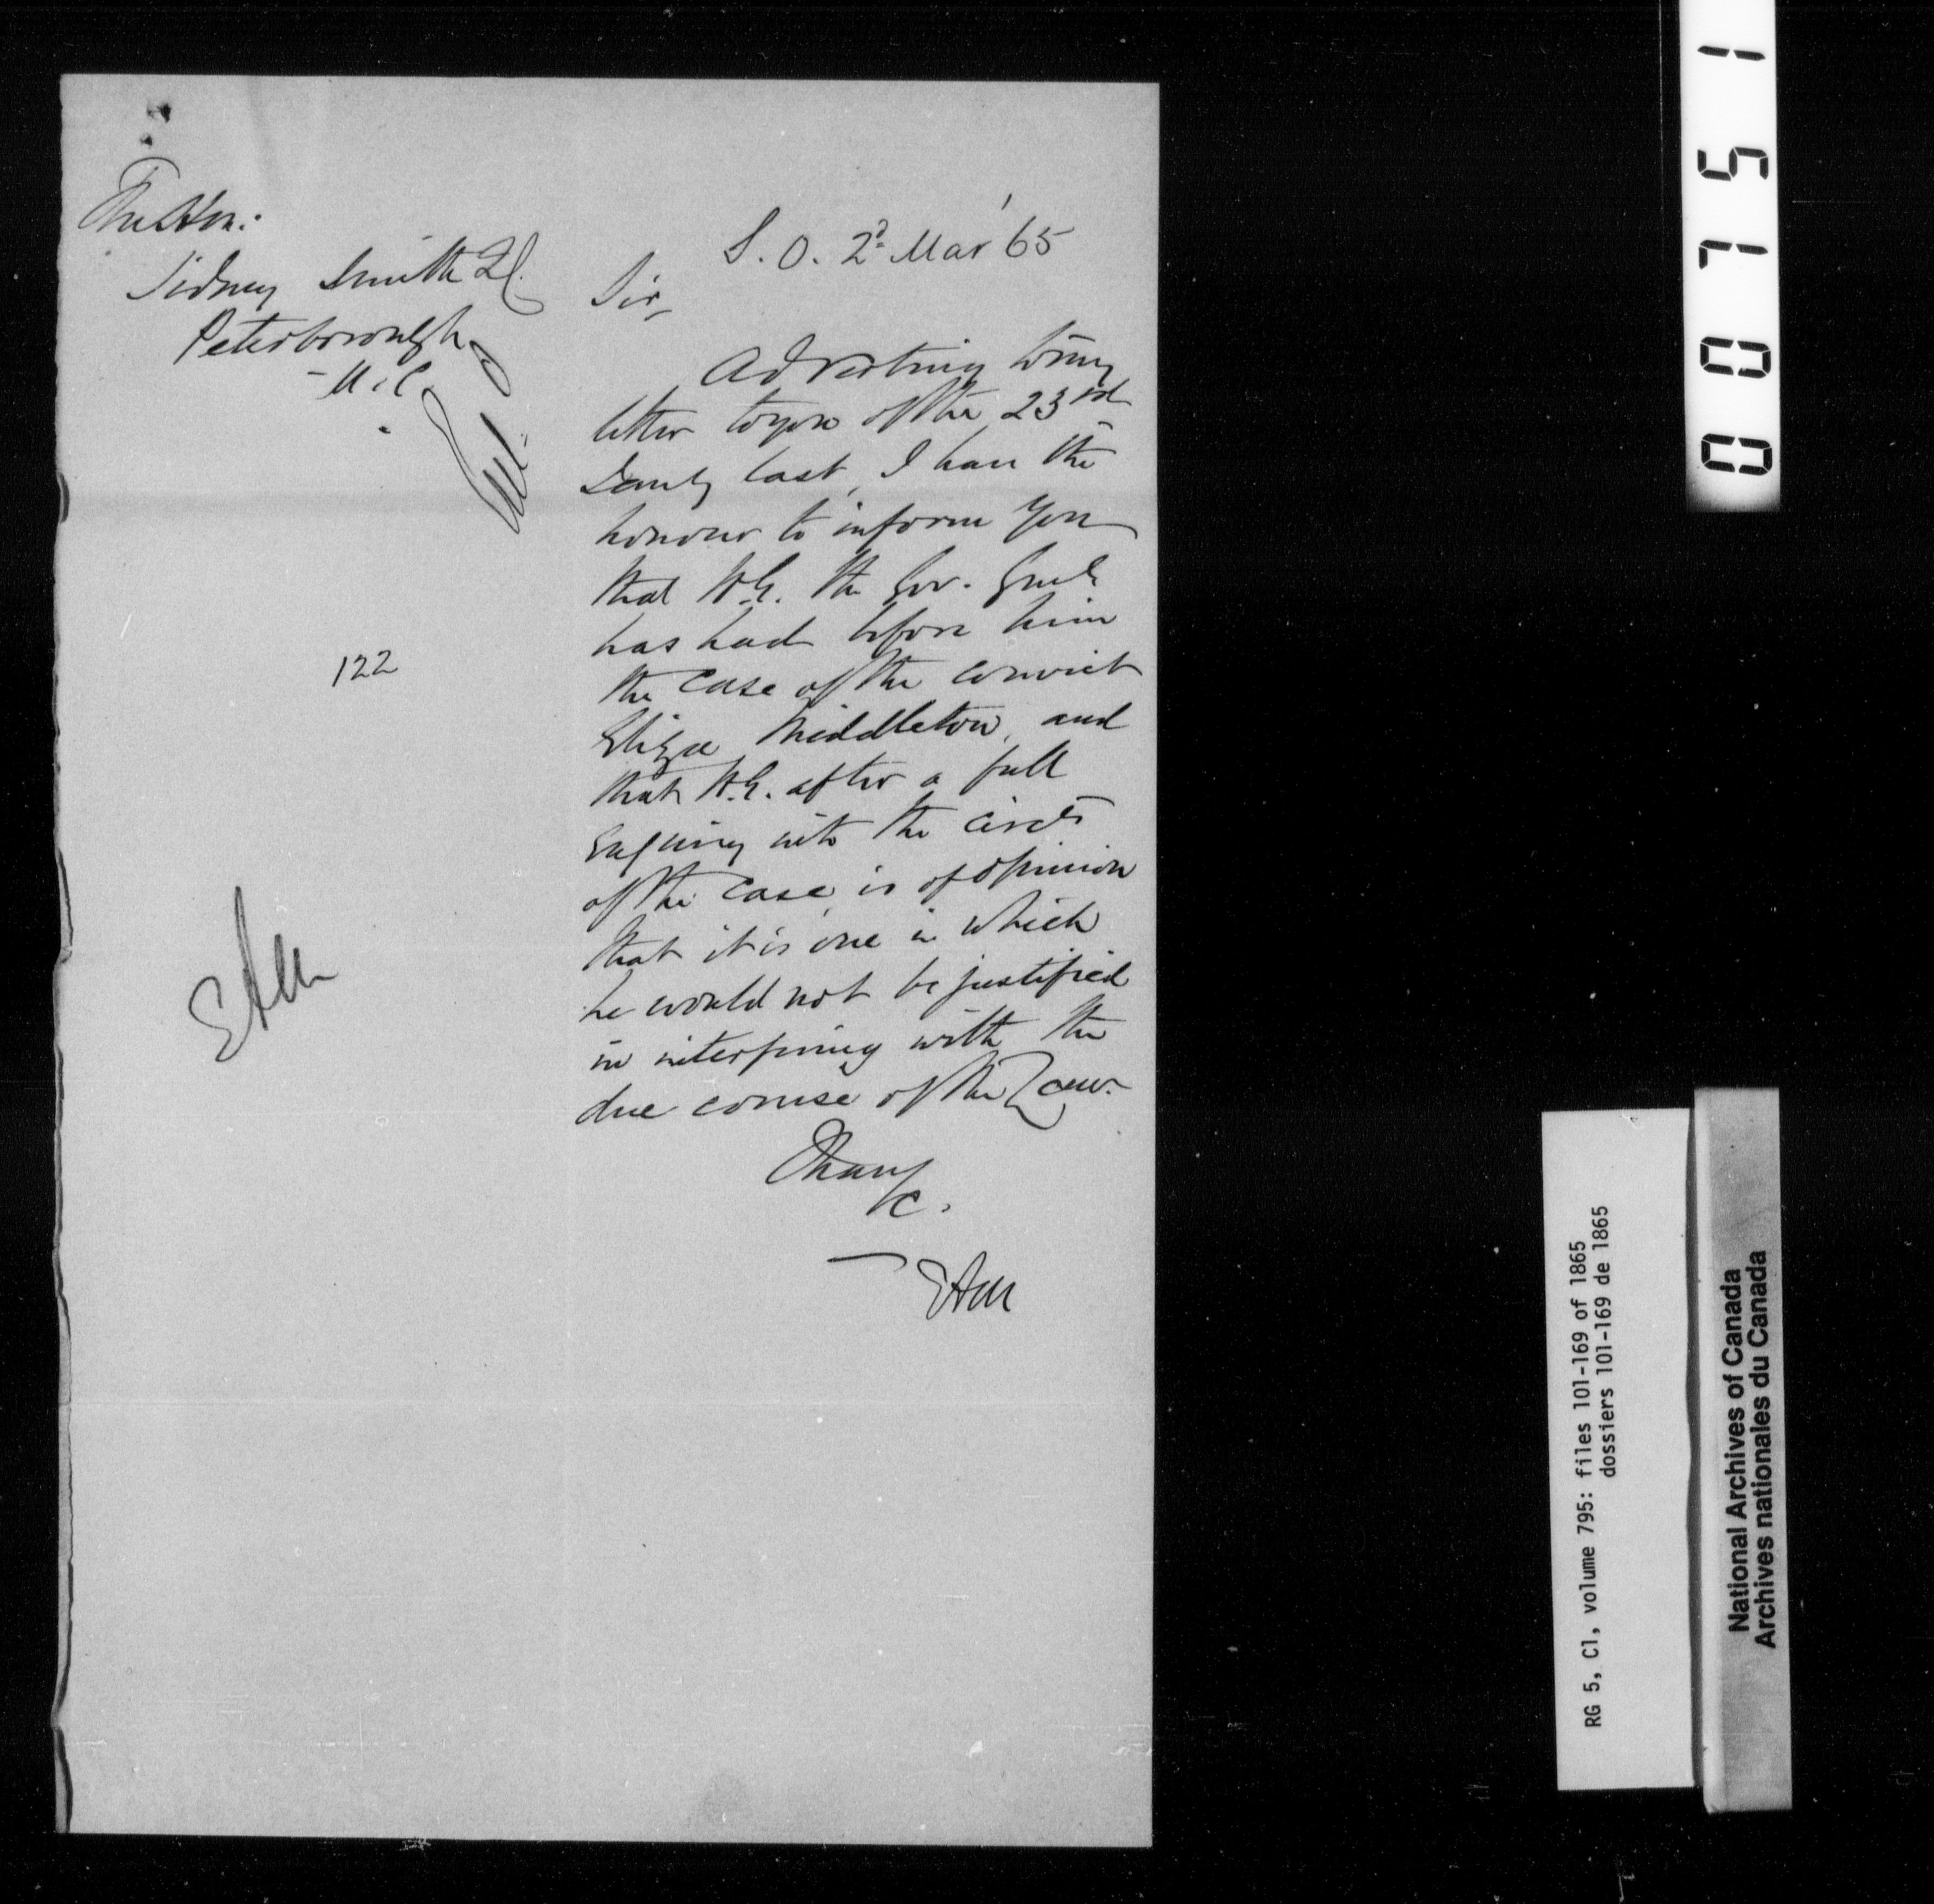 The Hon:
Sidney Smith Q.C.
Peterborough
- U.C.
S.O. 2d Mar '65
Sir,
Adverting to my
letter to you of the 23rd
Jany last, I have the
honour to inform you
that H.E. the Gov. Genl
has had before him
the case of the convict
Eliza Middleton, and
that H.E. after a full
enquiry into the circs
of the case, is of opinion
that it is one in which
he would not be justified
in interfering with the
due course of the Law.
I have
&c.
EAM
122
EAM
00751
RG 5, C1, volume 795: files 101-169 of 1865
dossiers 101-169 de 1865
National Archives of Canada
Archives nationales du Canada